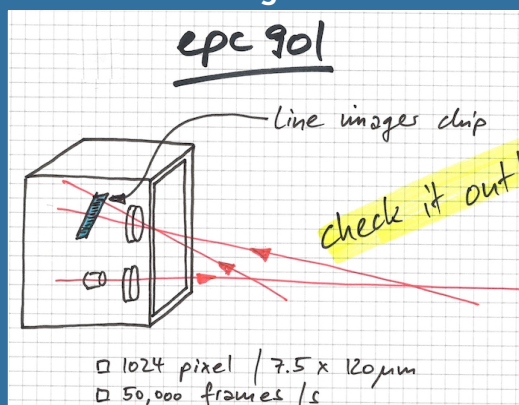 epc 901
Line images chip
check it out!
□ 1024 pixel / 7.5 x 120 µm
□ 50,000 frames /s